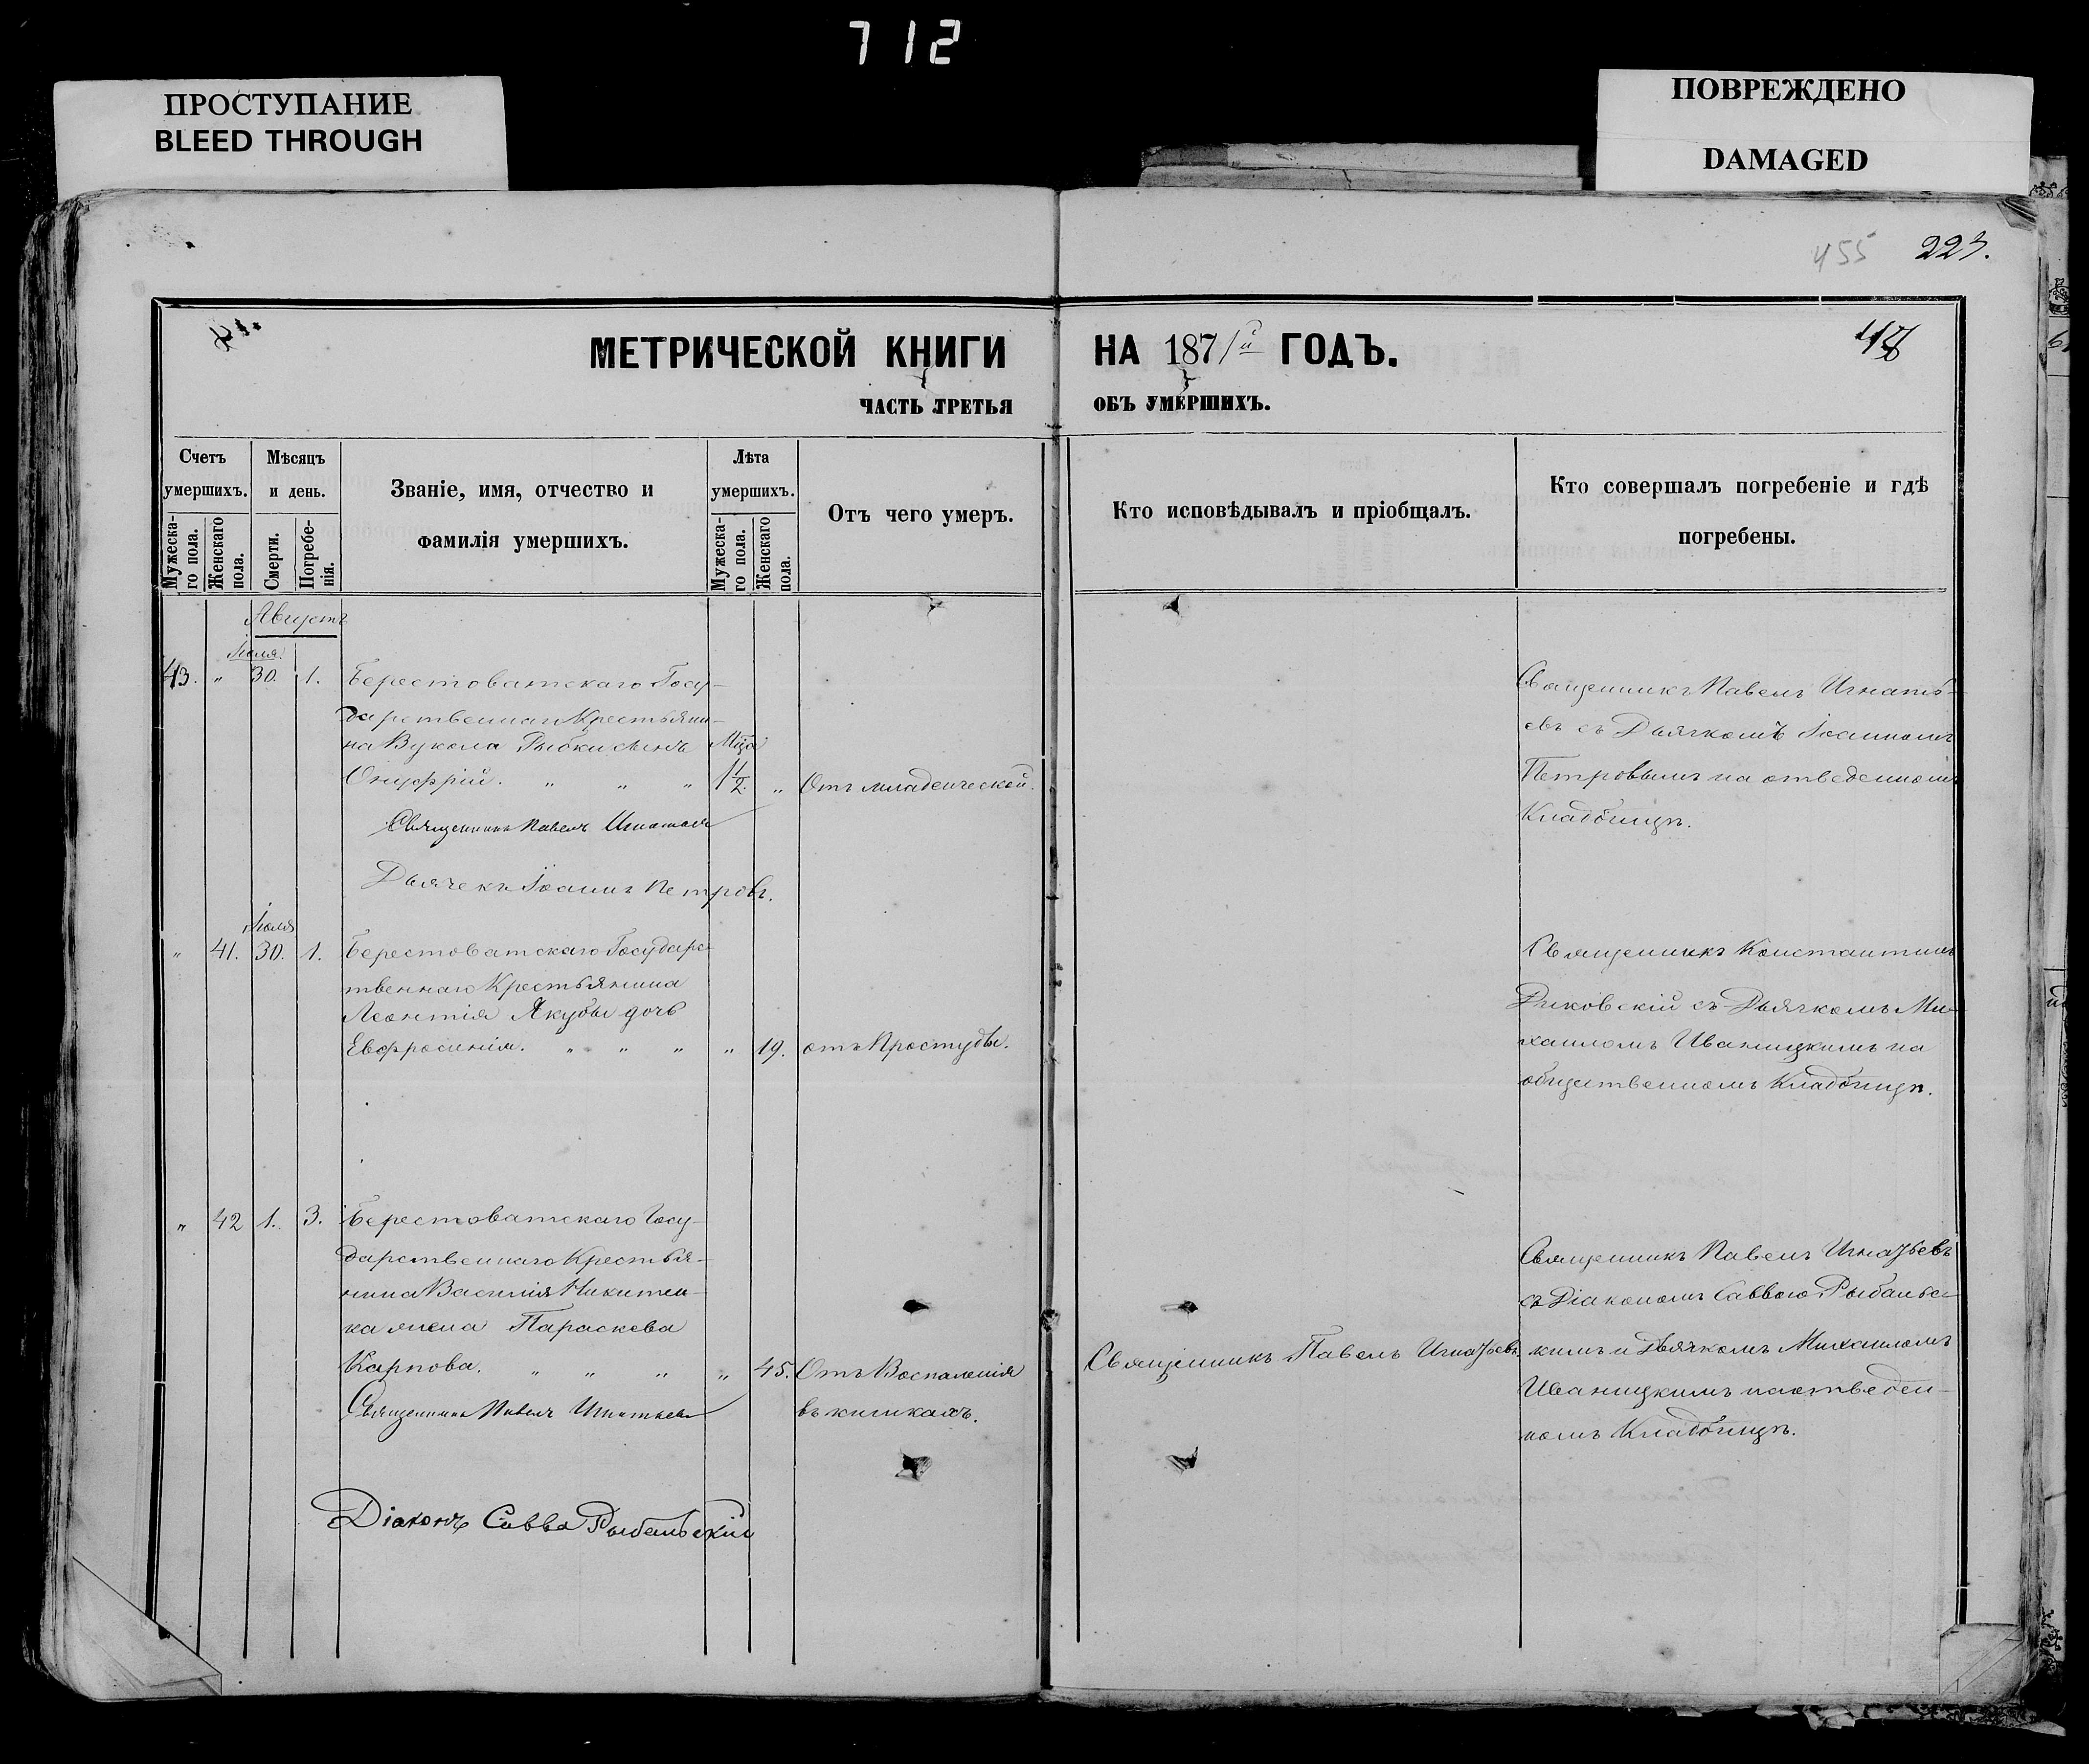 712
ПРОСТУПАНИЕ
BLEED THROUGH
ПОВРЕЖДЕНО
DAMAGED
455 223.
МЕТРИЧЕСКОЙ КНИГИ НА 1871й ГОДЪ.
ЧАСТЬ ТРЕТЬЯ ОБЪ УМЕРШИХЪ.
Счетъ умершихъ.
Мужеска-
го пола.
Женскаго
пола.
Мѣсяцъ
и день.
Смерти.
Погребе-
нія.
Званіе, имя, отчество и
фамилія умершихъ.
Лѣта
умершихъ.
Мужеска-
го пола.
Женскаго
пола.
Отъ чего умеръ.
Кто исповѣдывалъ и пріобщалъ.
Кто совершалъ погребеніе и гдѣ
погребены.
Августъ
Іюля.
43. " 30. 1. Берестоватскаго Госу-
дарственнаго Крестьяни-
на Вукола Рыбки сынъ Мѣся
Онуфрій. " " " 1 1/2. " Отъ младенческой.
Священникъ Павелъ Игнатьевъ
Дьячекъ Іоаннъ Петровъ.
Священникъ Павелъ Игнать-
евъ съ Дьячкомъ Іоанномъ
Петровымъ на отведенномъ
Кладбищѣ.
Іюля
" 41. 30. 1. Берестоватскаго Государс-
твеннаго Крестьянина
Леонтія Якубы дочь
Евфросинія. " " " " 19. отъ Простуды.
Священникъ Константинъ
Рыковскій съ Дьячкомъ Ми-
хаиломъ Иваницкимъ на
общественномъ Кладбищѣ.
" 42 1. 3. Берестоватскаго Госу-
дарственнаго Крестья-
нина Василія Никитен-
ка жена Параскева
Карпова. " " " " 45. Отъ Воспаленія
въ кишкахъ.
Священникъ Павелъ Игнатьевъ
Діаконъ Савва Рыбальскій
Священникъ Павелъ Игнатьевъ.
Священникъ Павелъ Игнатьевъ
съ Діакономъ Саввою Рыбальс-
кимъ и Дьячкомъ Михаиломъ
Иваницкимъ на отведен-
номъ Кладбищѣ.